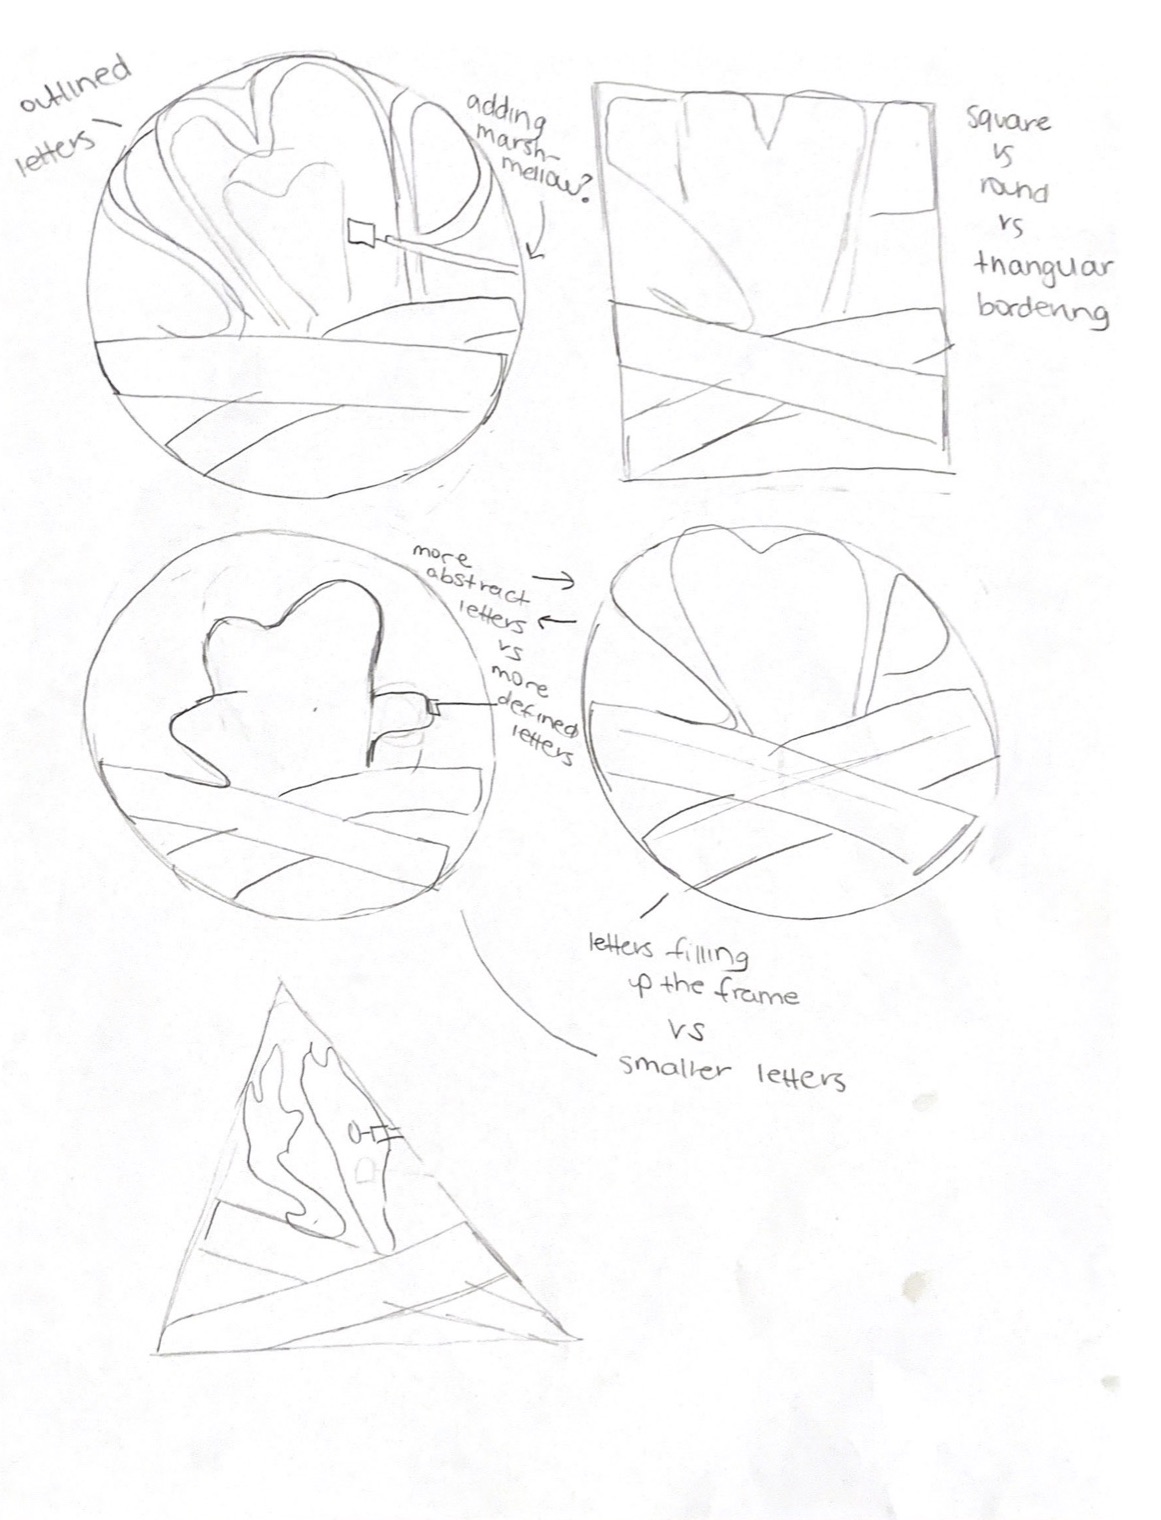 outlined
letters
adding
marsh-
mellow?
square
vs
round
vs
triangular
bordering
more
abstract
letters
vs
more
defined
letters
letters filling
up the frame
vs
smaller letters